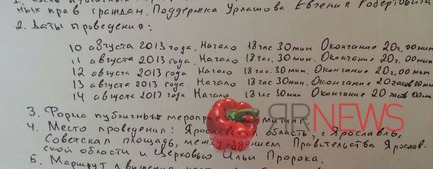 ных прав граждан. Поддержка Урлашова Евгения Робертовича
2. Даты проведения:
10 августа 2013 года. Начало 18 час 30 мин Окончание 20 ч. 00 мин
11 августа 2013 года. Начало 18 час 30 мин Окончание 20 ч. 00 мин
12 августа 2013 года. Начало 18 час 30 мин. Окончание 20 ч. 00 мин
13 августа 2013 года. Начало 18 час. 30 мин. Окончание 20 час 00 мин
14 августа 2013 года. Начало 18 час 30 мин Окончание 20 час 00 мин
3. Форма публичного
ЯRNEWS
4. Место проведения: Ярославская область, г. Ярославль,
Советская площадь, Правительства Ярослав-
ской области и церковью Ильи Пророка.
5. Маршрут